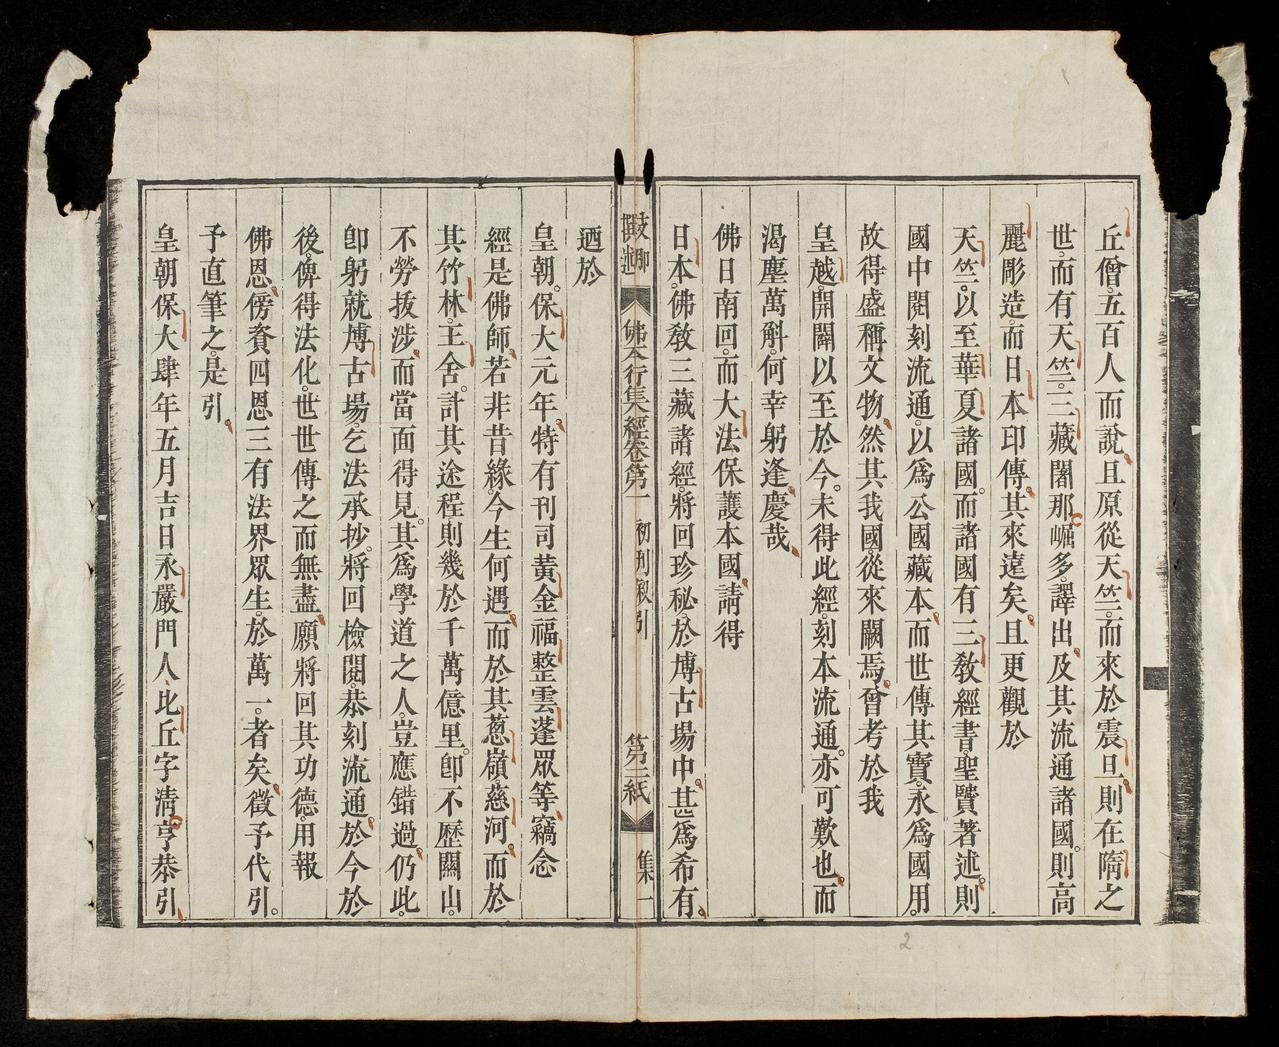 丘僧。五百人而說。且原從天竺。而來於震旦。則在隋之
世。而有天竺。三藏闍那崛多。譯出。及其流通諸國。則高
麗彫造。而日本印傳。其來遠矣。且更觀於
天竺。以至華夏諸國。而諸國有三教經書。聖贒著述。則
國中閱刻流通。以爲公國藏本。而世傳其寶。永爲國用。
故得盛稱文物。然其我國。從來闕焉。曾考於我
皇越。開闢以至於今。未得此經。刻本流通。亦可歎也。而
渴塵萬斛。何幸躬逢慶哉。
佛日南回。而大法保護本國。請得
日本。佛教三藏諸經將回珍秘。於博古場中。甚爲希有。
佛本行集經卷第一 初刊叙引 第三紙 集一
迺於
皇朝。保大元年。特有刊司黄金福。整雲蓬眾等。竊念
經是佛師。若非昔緣。今生何遇。而於其葱嶺。慈河。而於
其竹林。王舍。計其途程。則幾於千萬億里。卽不歷關山。
不勞拔涉。而當面得見。其爲學道之人。豈應錯過。仍此。
卽躬就博古場。乞法承抄。將回檢閱。恭刻流通。於今於
後。俾得法化。世世傳之而無盡。願將回其功德。用報
佛恩。傍資四恩三有法界眾生。於萬一。者矣。徵予代引。
予直筆之。是引。
皇朝保大肆年五月吉日永嚴門人比丘字清亨恭引